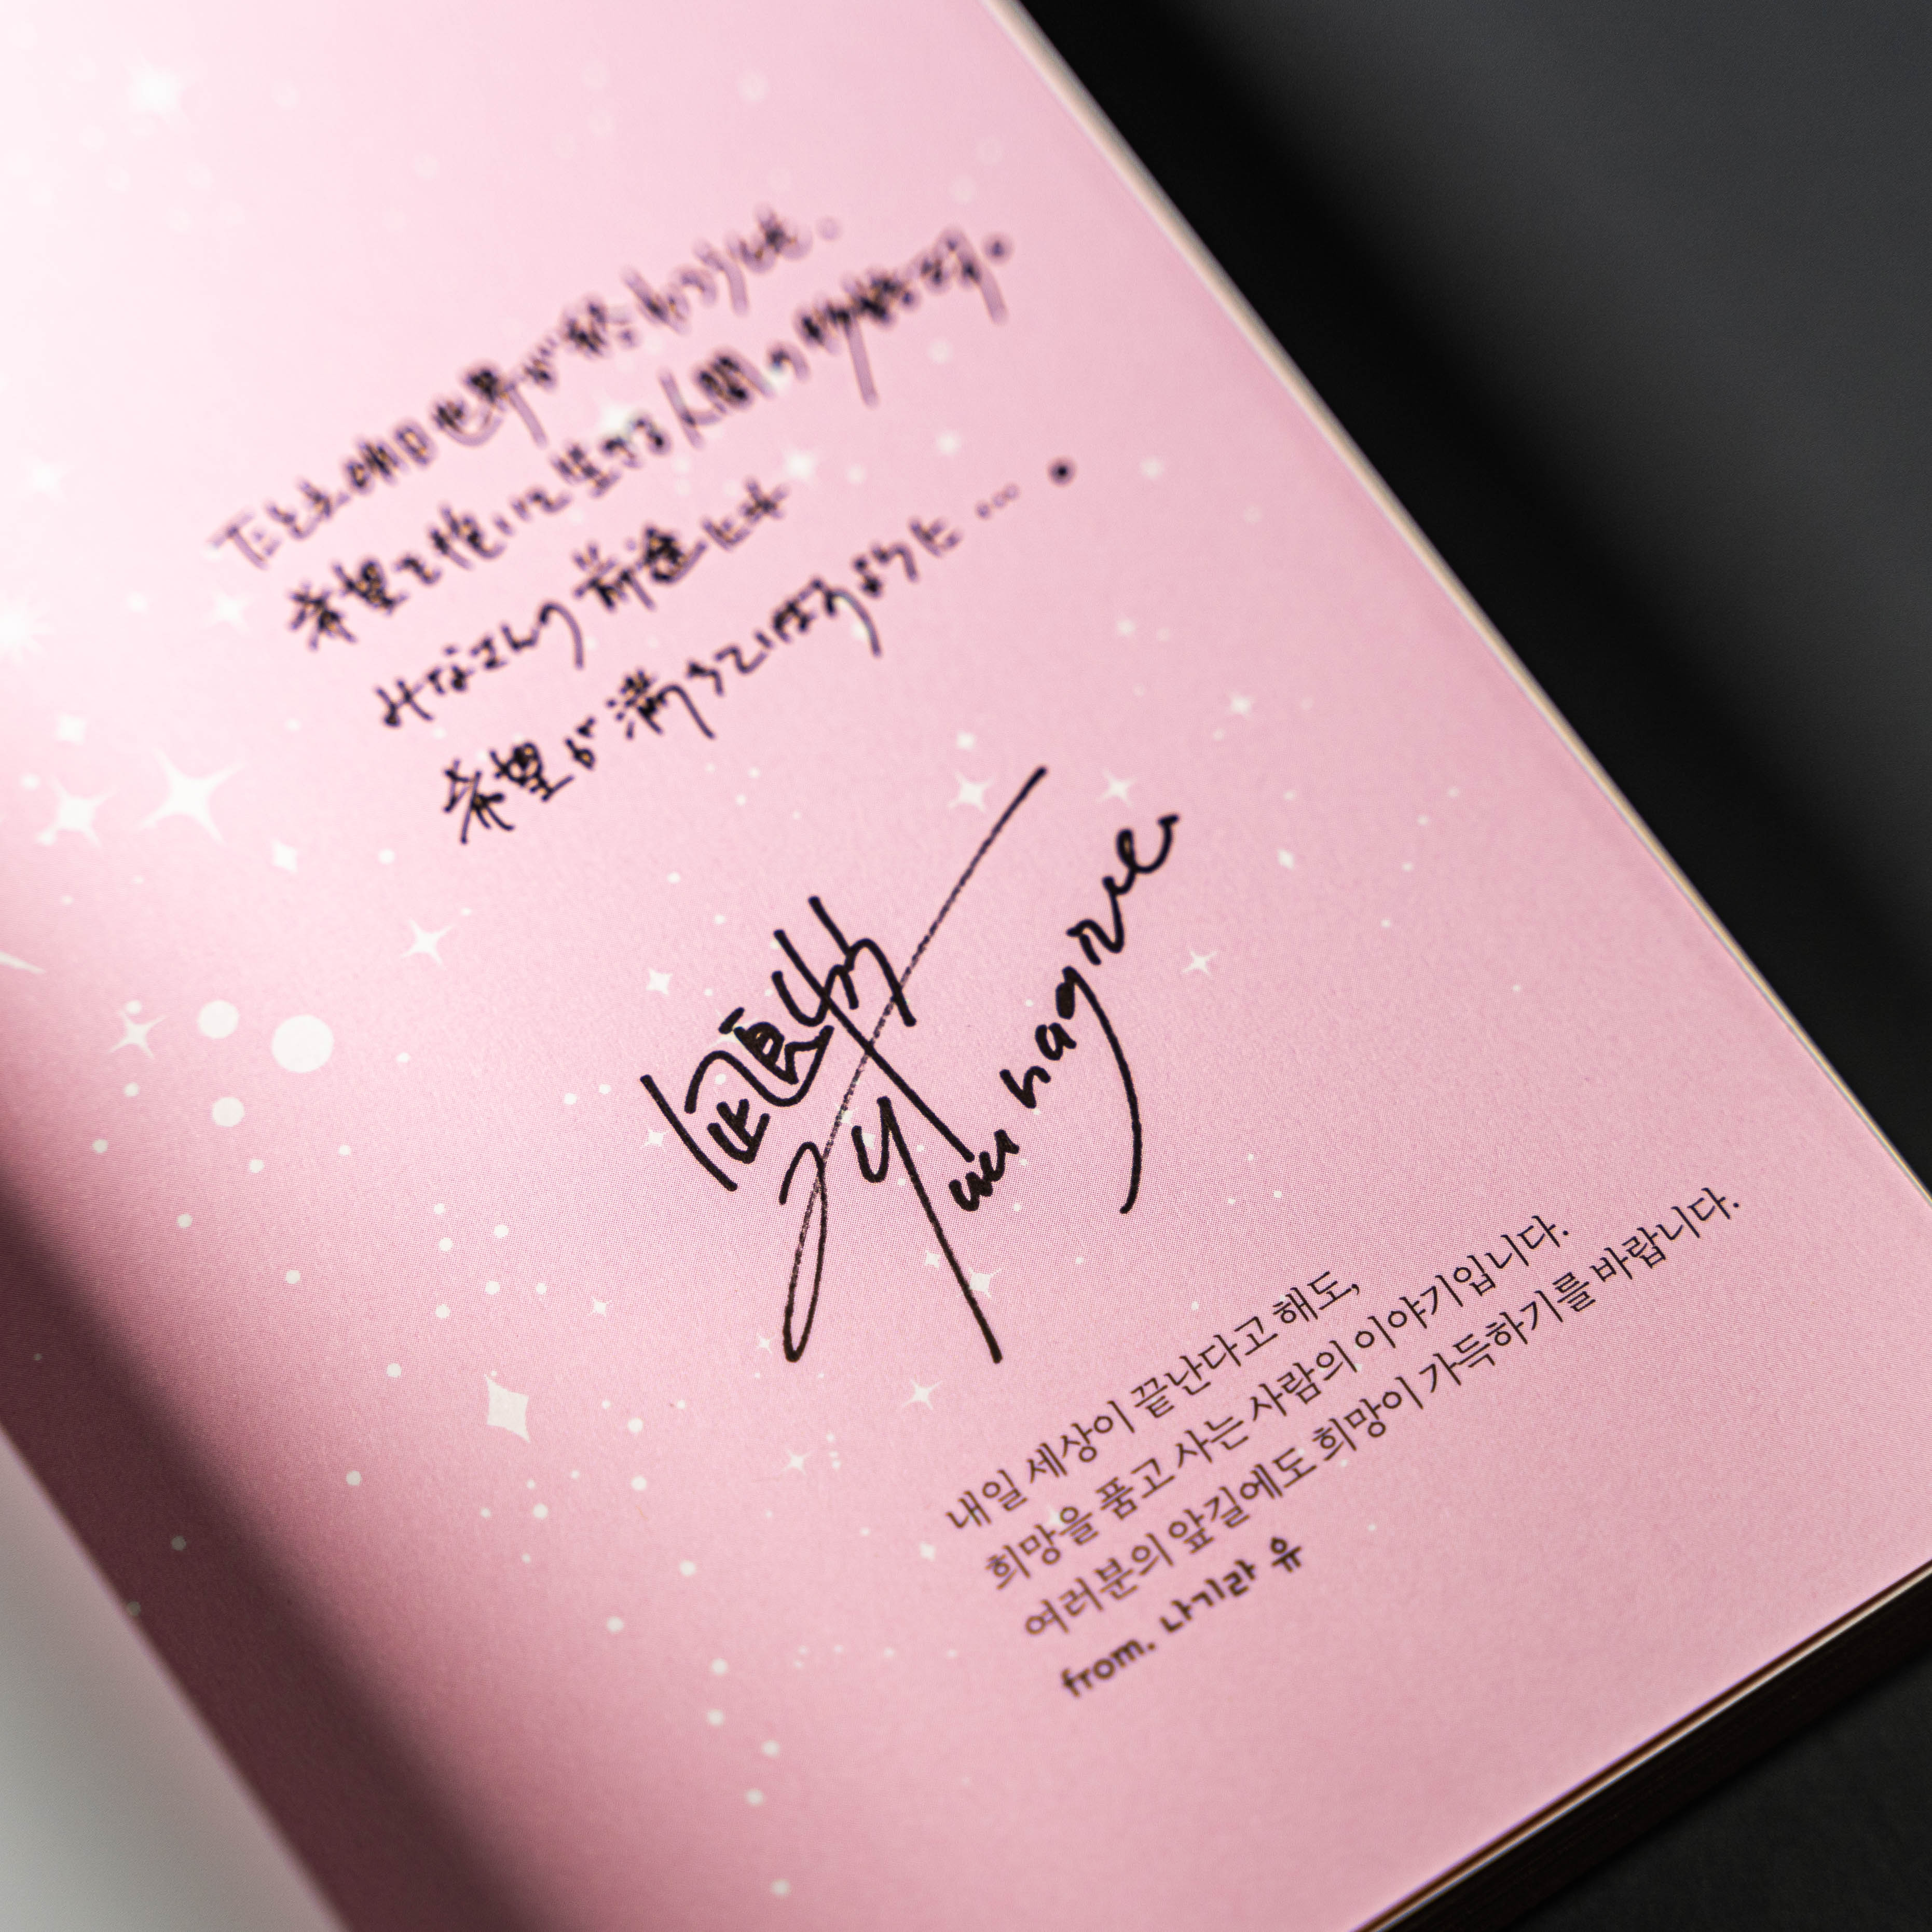 たとえ明日世界が終わろうとも、
希望を抱いて生きる人間の物語です。
みなさんの前途にも
希望が満ちていますように…。
凪良ゆう
Yuu nagira
내일 세상이 끝난다고 해도,
희망을 품고 사는 사람의 이야기입니다.
여러분의 앞길에도 희망이 가득하기를 바랍니다.
from. 나기라 유